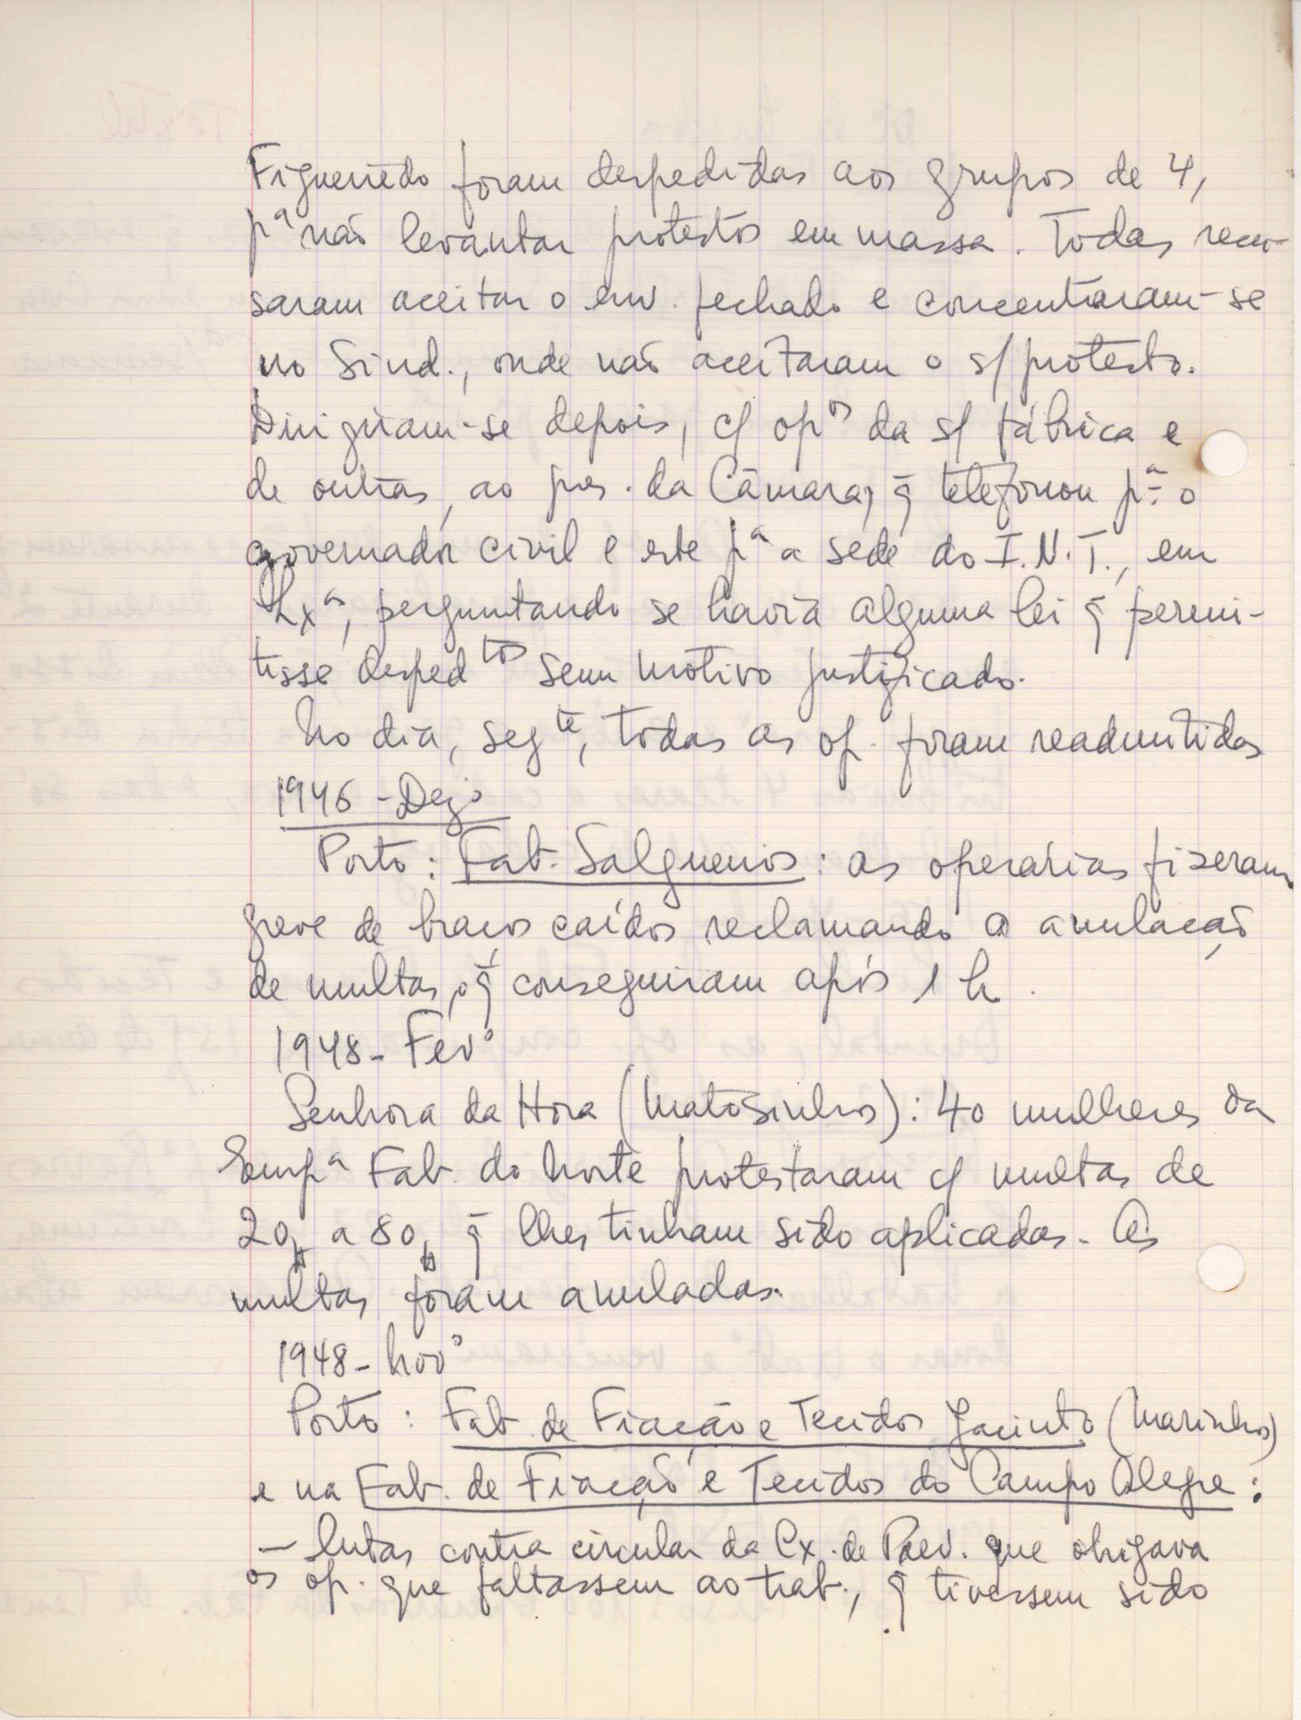 Figueiredo foram despedidas aos grupos de 4,
pª não levantar protestos em massa. Todas recu-
saram aceitar o env. fechado e concentraram-se
no Sind., onde não aceitaram o s/ protesto.
Dirigiram-se depois, c/ opºs da s/ fábrica e
de outras, ao pres. da Câmara, q̃ telefonou pª o
governador civil e este pª a sede do I.N.T., em
Lxª, perguntando se havia alguma lei q̃ permi-
tisse despedtos sem motivo justificado.
No dia, segte, todas as op. foram readmitidas
1946 - Dezº
Porto: Fab. Salgueiros: as operárias fizeram
greve de braços caídos reclamando a anulação
de multas, o q̃ conseguiram após 1 h.
1948 - Fevº
Senhora da Hora (Matosinhos): 40 mulheres da
Empª Fab. do Norte protestaram c/ multas de
20$ a 80$ q̃ lhes tinham sido aplicadas. As
multas foram anuladas.
1948 - Novº
Porto: Fab. de Fiação e Tecidos Jacinto (Marinho)
e na Fab. de Fiação e Tecidos do Campo Alegre:
— lutas contra circular da Cx. de Prev. que obrigava
os op. que faltassem ao trab., q̃ tivessem sido